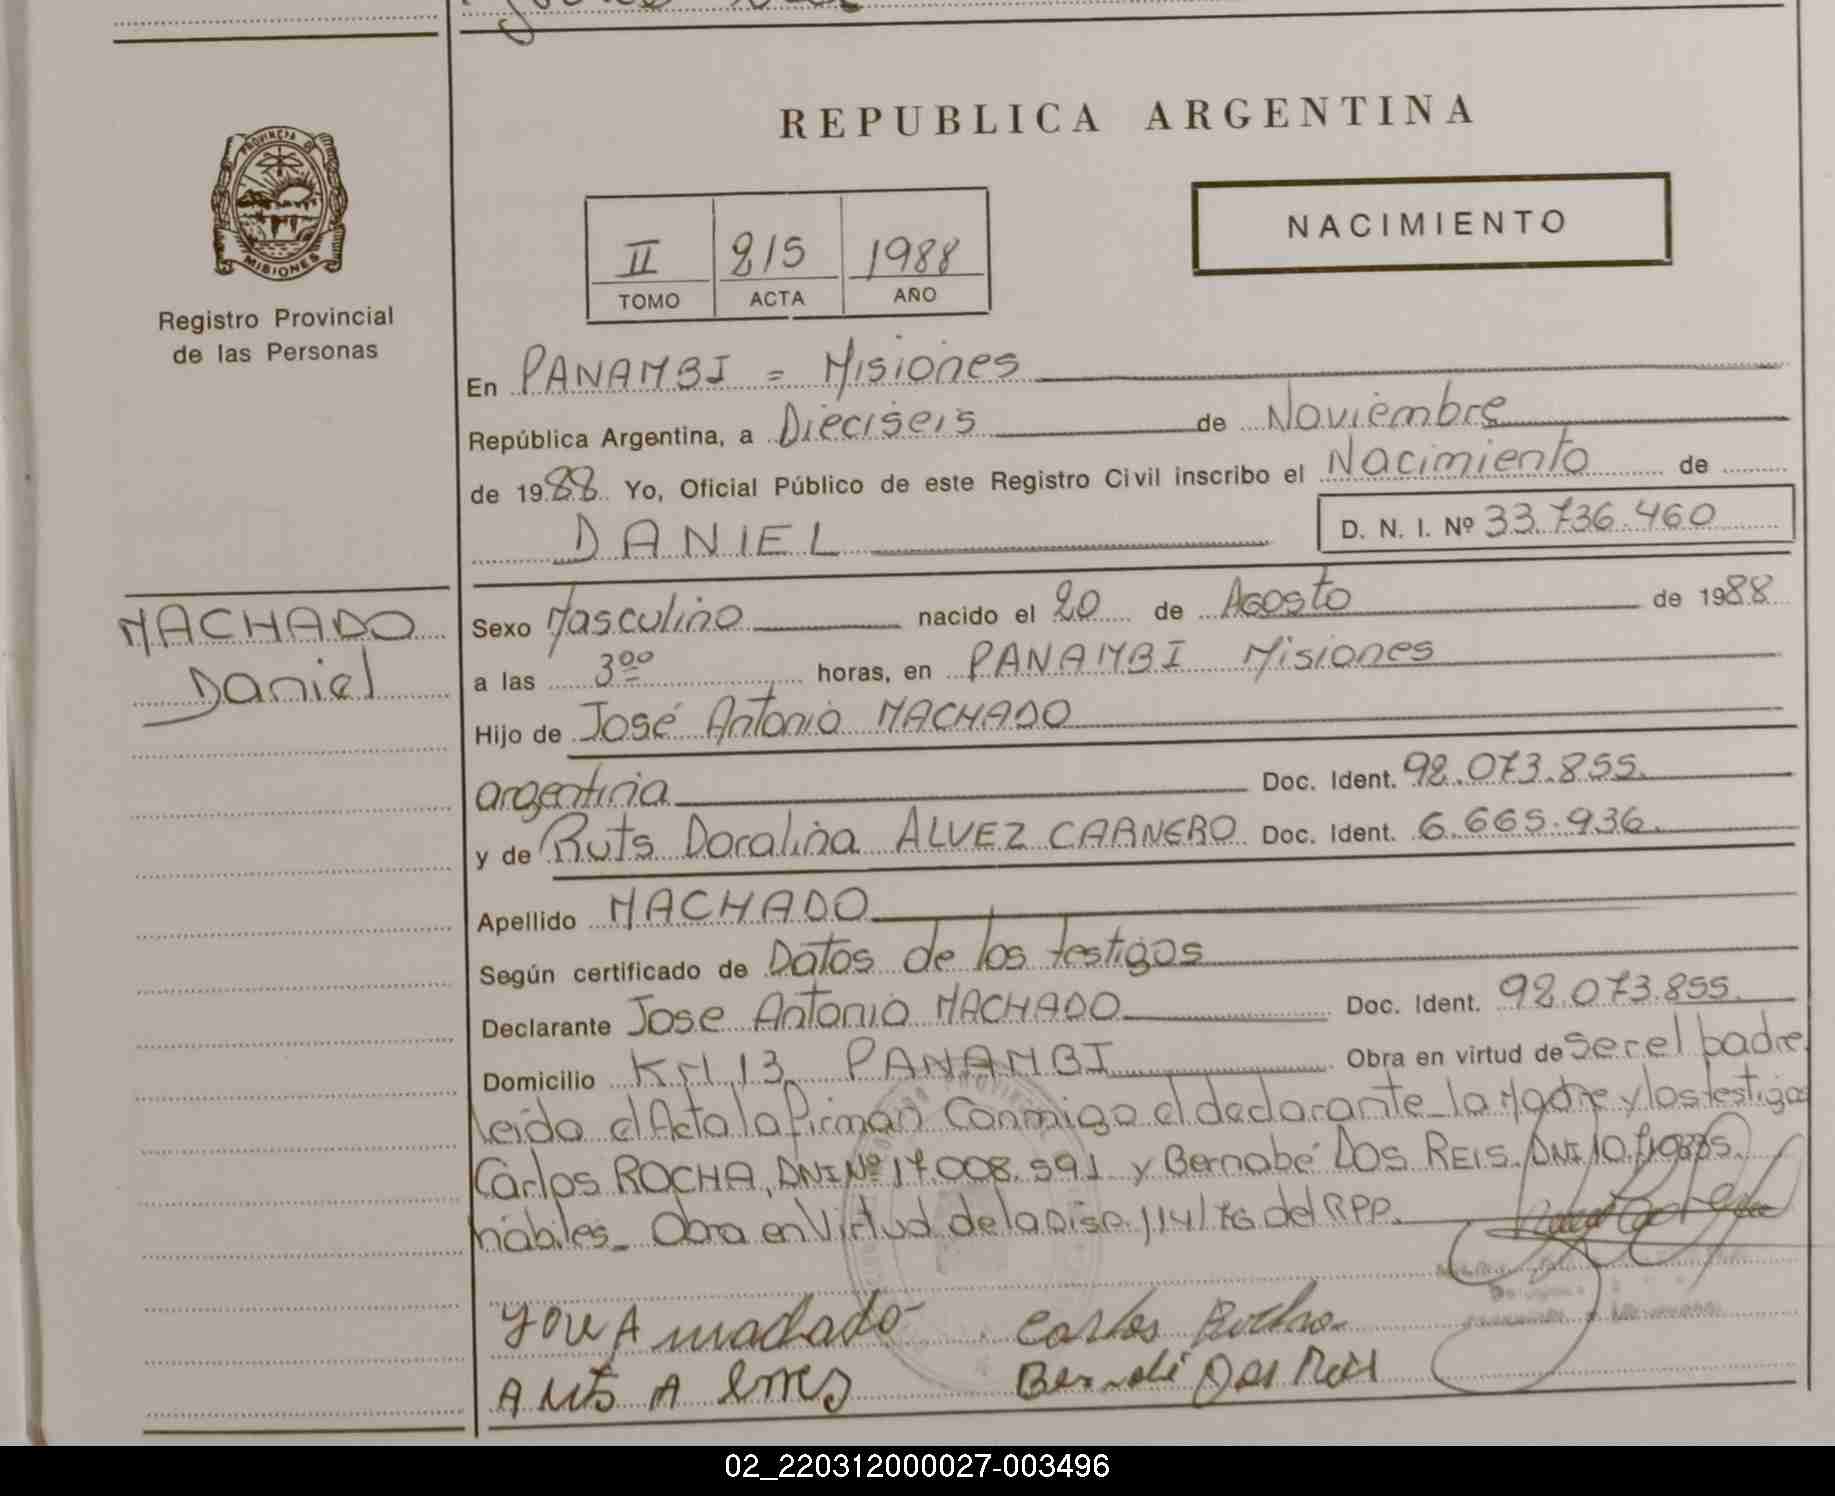 PROVINCIA DE
MISIONES
Registro Provincial
de las Personas
REPUBLICA ARGENTINA
NACIMIENTO
II 215 1988
TOMO ACTA AÑO
En PANAMBI = Misiones
República Argentina, a Dieciseis de Noviembre
de 1988 Yo, Oficial Público de este Registro Civil inscribo el Nacimiento de
DANIEL D. N. I. Nº 33.736.460
MACHADO
Daniel
Sexo Masculino nacido el 20 de Agosto de 1988
a las 3⁰⁰ horas, en PANAMBI Misiones
Hijo de José Antonio MACHADO
argentina Doc. Ident. 92.073.855.
y de Ruts Doralina ALVEZ CARNERO Doc. Ident. 6.665.936.
Apellido MACHADO
Según certificado de Datos de los testigos
Declarante Jose Antonio MACHADO Doc. Ident. 92.073.855.
Domicilio KM 13 PANAMBI Obra en virtud de Ser el padre.
leida el Acta la firman Conmigo el declarante la Madre y los testigos
Carlos ROCHA, DNI Nº 17.008.591 y Bernabé DOS REIS. DNI
hábiles_ Obra en Virtud de la Disp. 114/76 del RPP.
José A machado Carlos Rocha
Bernabé Dos Reis
02_220312000027-003496